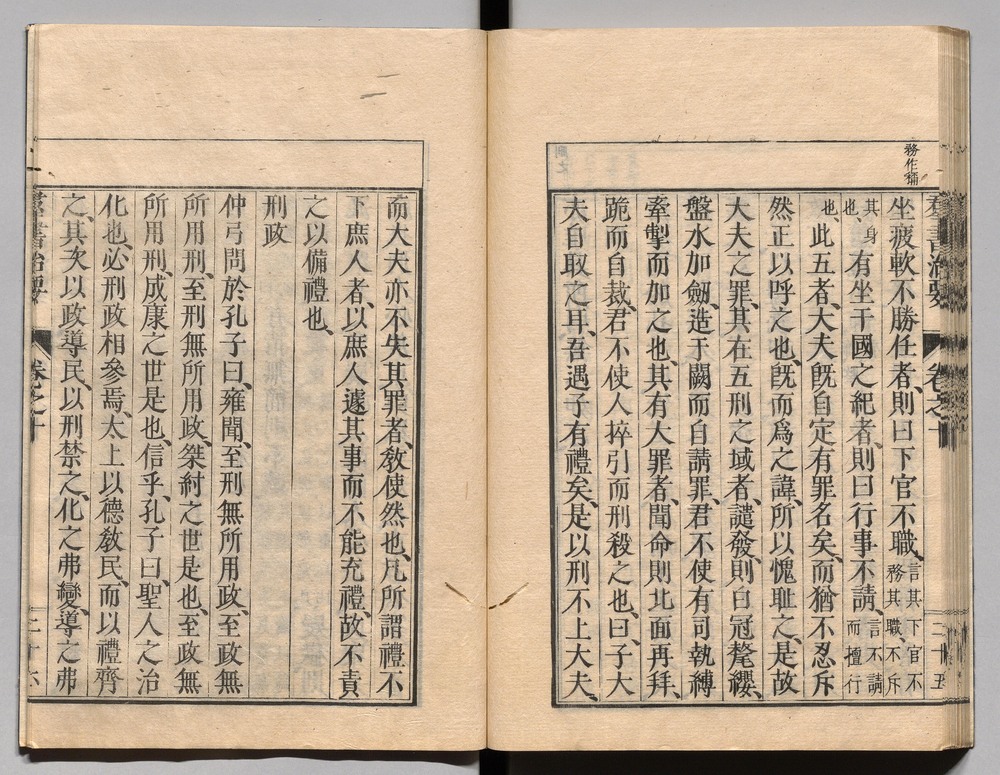 務作稱
羣書治要 卷之十 二十五
坐疲軟不勝任者、則曰下官不職、言其下官不務其職、不斥
其身也、有坐干國之紀者、則曰行事不請、言不請而擅行
也、此五者、大夫旣自定有罪名矣、而猶不忍斥
然正以呼之也、旣而爲之諱、所以愧耻之、是故
大夫之罪、其在五刑之域者、譴發、則白冠氂纓、
盤水加劔、造于闕而自請罪、君不使有司執縛
牽掣而加之也、其有大罪者、聞命則北面再拜、
跪而自裁、君不使人捽引而刑殺之也、曰、子大
夫自取之耳、吾遇子有禮矣、是以刑不上大夫、
而大夫亦不失其罪者、敎使然也、凡所謂禮不
下庶人者、以庶人遽其事而不能充禮、故不責
之以備禮也、
刑政
仲弓問於孔子曰、雍聞、至刑無所用政、至政無
所用刑、至刑無所用政、桀紂之世是也、至政無
所用刑、成康之世是也、信乎、孔子曰、聖人之治
化也、必刑政相參焉、太上以德敎民、而以禮齊
之、其次以政導民、以刑禁之、化之弗變、導之弗
羣書治要 卷之十 二十六